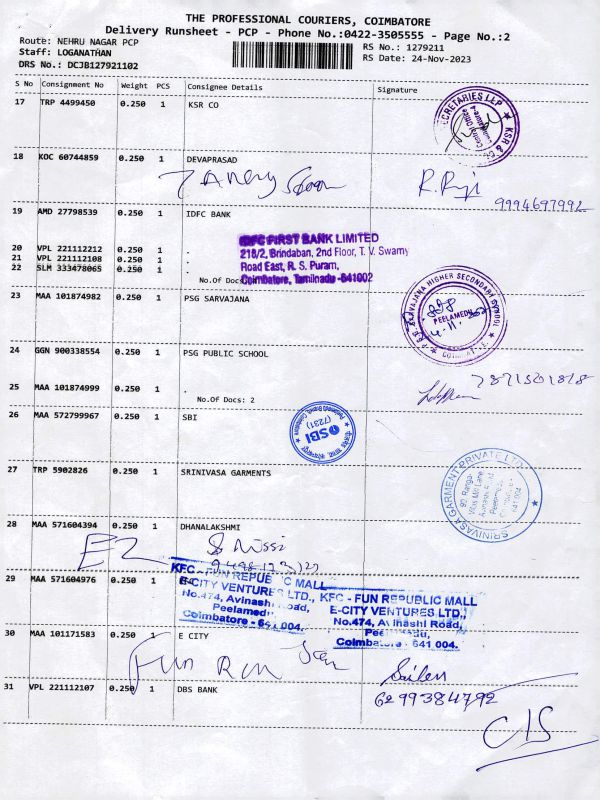 THE PROFESSIONAL COURIERS, COIMBATORE
Delivery Runsheet - PCP - Phone No.:0422-3505555 - Page No.:2
Route: NEHRU NAGAR PCP
Staff: LOGANATHAN
DRS No.: DCJB127921102
RS No.: 1279211
RS Date: 24-Nov-2023
S No Consignment No Weight PCS Consignee Details Signature
17 TRP 4499450 0.250 1 KSR CO
18 KOC 60744859 0.250 1 DEVAPRASAD
R. Raji
9994697992
19 AMD 27798539 0.250 1 IDFC BANK
20 VPL 221112212 0.250 1 .
21 VPL 221112108 0.250 1 .
22 SLM 333478065 0.250 1 .
No.Of Docs
IDFC FIRST BANK LIMITED
218/2, Brindaban, 2nd Floor, T. V. Swamy
Road East, R. S. Puram,
Coimbatore, Tamilnadu -641002
23 MAA 101874982 0.250 1 PSG SARVAJANA
P.S.G. SARVAJANA HIGHER SECONDARY SCHOOL
PEELAMEDU
24 GGN 900338554 0.250 1 PSG PUBLIC SCHOOL
25 MAA 101874999 0.250 1 .
No.Of Docs: 2
7871501818
26 MAA 572799967 0.250 1 SBI
SBI
(7231)
27 TRP 5902826 0.250 1 SRINIVASA GARMENTS
SRINIVASA GARMENT PRIVATE LTD.
641 004
28 MAA 571604394 0.250 1 DHANALAKSHMI
29 MAA 571604976 0.250 1
KFC - FUN REPUBLIC MALL
E-CITY VENTURES LTD.,
No.474, Avinashi Road,
Peelamedu,
Coimbatore - 641 004.
KFC - FUN REPUBLIC MALL
E-CITY VENTURES LTD.,
No.474, Avinashi Road,
Peelamedu,
Coimbatore - 641 004.
30 MAA 101171583 0.250 1 E CITY
Fun
31 VPL 221112107 0.250 1 DBS BANK
6299384792